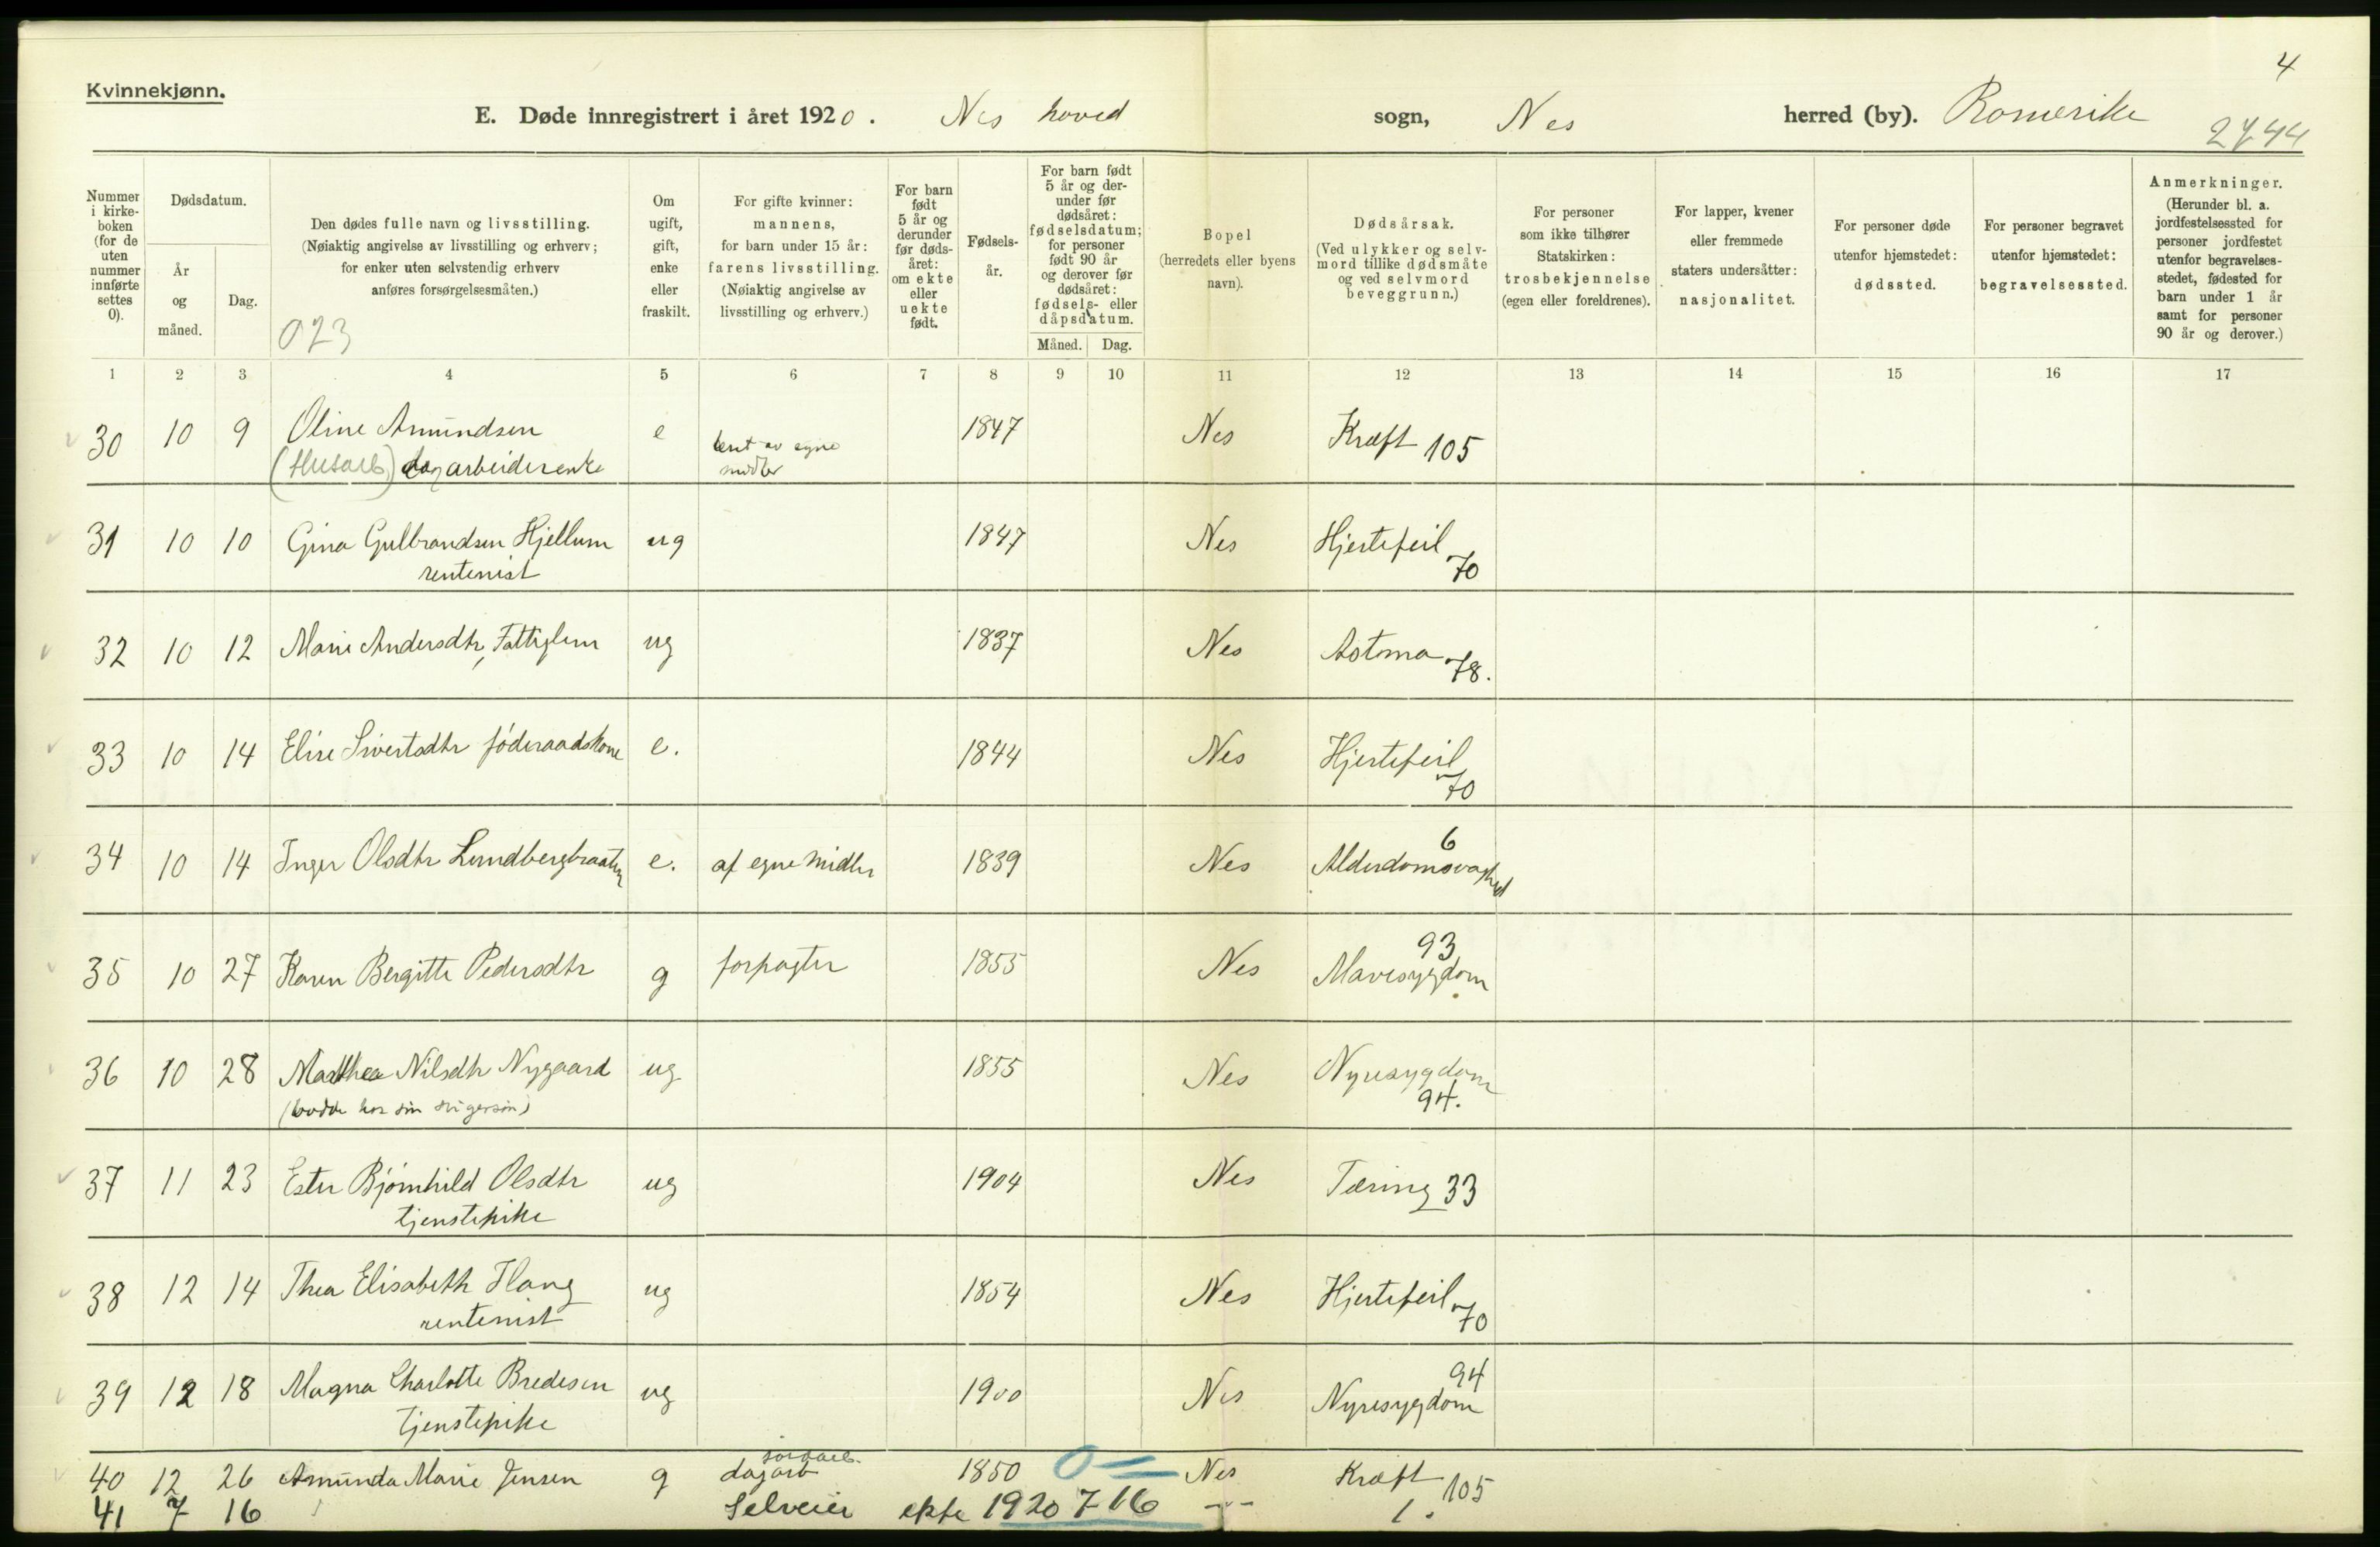 4
Kvinnekjønn.
E. Døde innregistrert i året 1920. Nes hoved sogn, Nes herred (by). Romerike
2744
Nummer i kirke- boken (for de uten nummer innførte settes 0).
Dødsdatum.
År og måned.
Dag.
Den dødes fulle navn og livsstilling.
(Nøiaktig angivelse av livsstilling og erhverv;
for enker uten selvstendig erhverv
anføres forsørgelsesmåten.)
023
Om ugift, gift, enke eller fraskilt.
For gifte kvinner:
mannens,
for barn under 15 år:
farens livsstilling.
(Nøiaktig angivelse av
livsstilling og erhverv.)
For barn født 5 år og derunder før døds- året: om ekte eller uekte født.
Fødsels- år.
For barn født 5 år og der- under før dødsåret: fødselsdatum; for personer født 90 år og derover før dødsåret: fødsels- eller dåpsdatum.
Måned. Dag.
Bopel
(herredets eller byens
navn).
Dødsårsak.
(Ved ulykker og selv-
mord tillike dødsmåte
og ved selvmord
beveggrunn.)
For personer
som ikke tilhører
Statskirken:
trosbekjennelse
(egen eller foreldrenes).
For lapper, kvener
eller fremmede
staters undersåtter:
nasjonalitet.
For personer døde
utenfor hjemstedet:
dødssted.
For personer begravet
utenfor hjemstedet:
begravelsessted.
Anmerkninger.
(Herunder bl. a.
jordfestelsessted for
personer jordfestet
utenfor begravelses-
stedet, fødested for
barn under 1 år
samt for personer
90 år og derover.)
1 2 3 4 5 6 7 8 9 10 11 12 13 14 15 16 17
30 10 9 Oline Amundsen e levet av egne 1847 Nes Kræft 105
(Husarb.) dagarbeiderenke midler
31 10 10 Gina Gulbrandsen Hjellum ug 1847 Nes Hjertefeil 70
rentenist
32 10 12 Marie Andersdtr, Fattiglem ug 1837 Nes Astma 78.
33 10 14 Elise Sivertsdtr föderaadskone e. 1844 Nes Hjertefeil 70
34 10 14 Inger Olsdtr Lundbergbraaten e. af egne midler 1839 Nes Alderdomsvaghed 6
35 10 27 Karen Bergitte Pedersdtr g forpagter 1855 Nes Mavesygdom 93
36 10 28 Mathea Nilsdtr Nygaard ug 1855 Nes Nyresygdom 94.
(bodde hos sin svigersøn)
37 11 23 Ester Bjørnhild Olsdtr ug 1904 Nes Tæring 33
tjenstepike
38 12 14 Thea Elisabeth Haug ug 1854 Nes Hjertefeil 70
rentenist
39 12 18 Magna Charlotte Bredesen ug 1900 Nes Nyresygdom 94
tjenstepike
40 12 26 Amunda Marie Jensen g dagarb jordarb. 1850 0 Nes Kræft 105
41 7 16 Selveier ekte 1920 7 16 -"- 1.